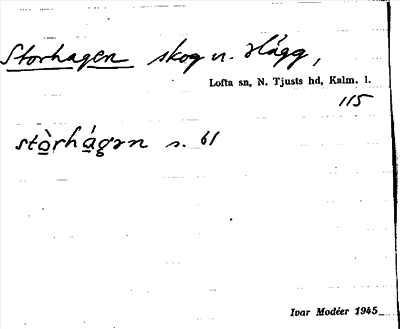 Storhagen skog o. slägg,
Lofta sn, N. Tjusts hd, Kalm. l.
115
stòrhágɜn s. 61
Ivar Modéer 1945